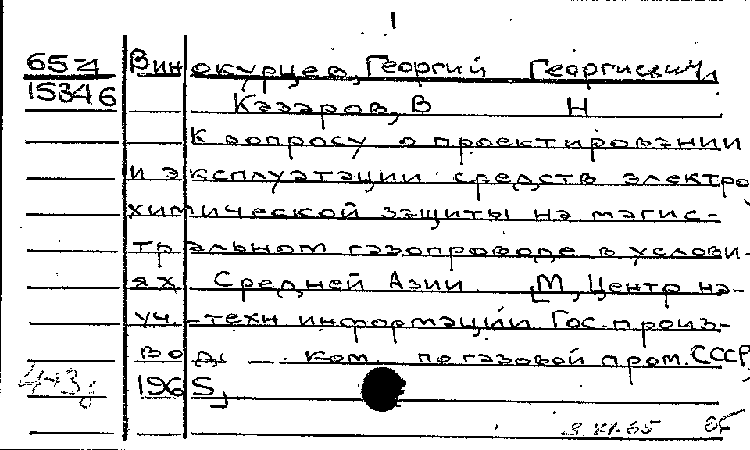 1
65-4 Винокурцев, Георгий Георгиевич,
15346 Казаров, В Н
К вопросу о проектировании
и эксплуатации средств электро
химической защиты на магис-
тральном газопроводе в услови-
ях Средней Азии [М, Центр на-
уч.-техн информации Гос. произ-
вод ком по газовой пром. СССР,
1965,
65